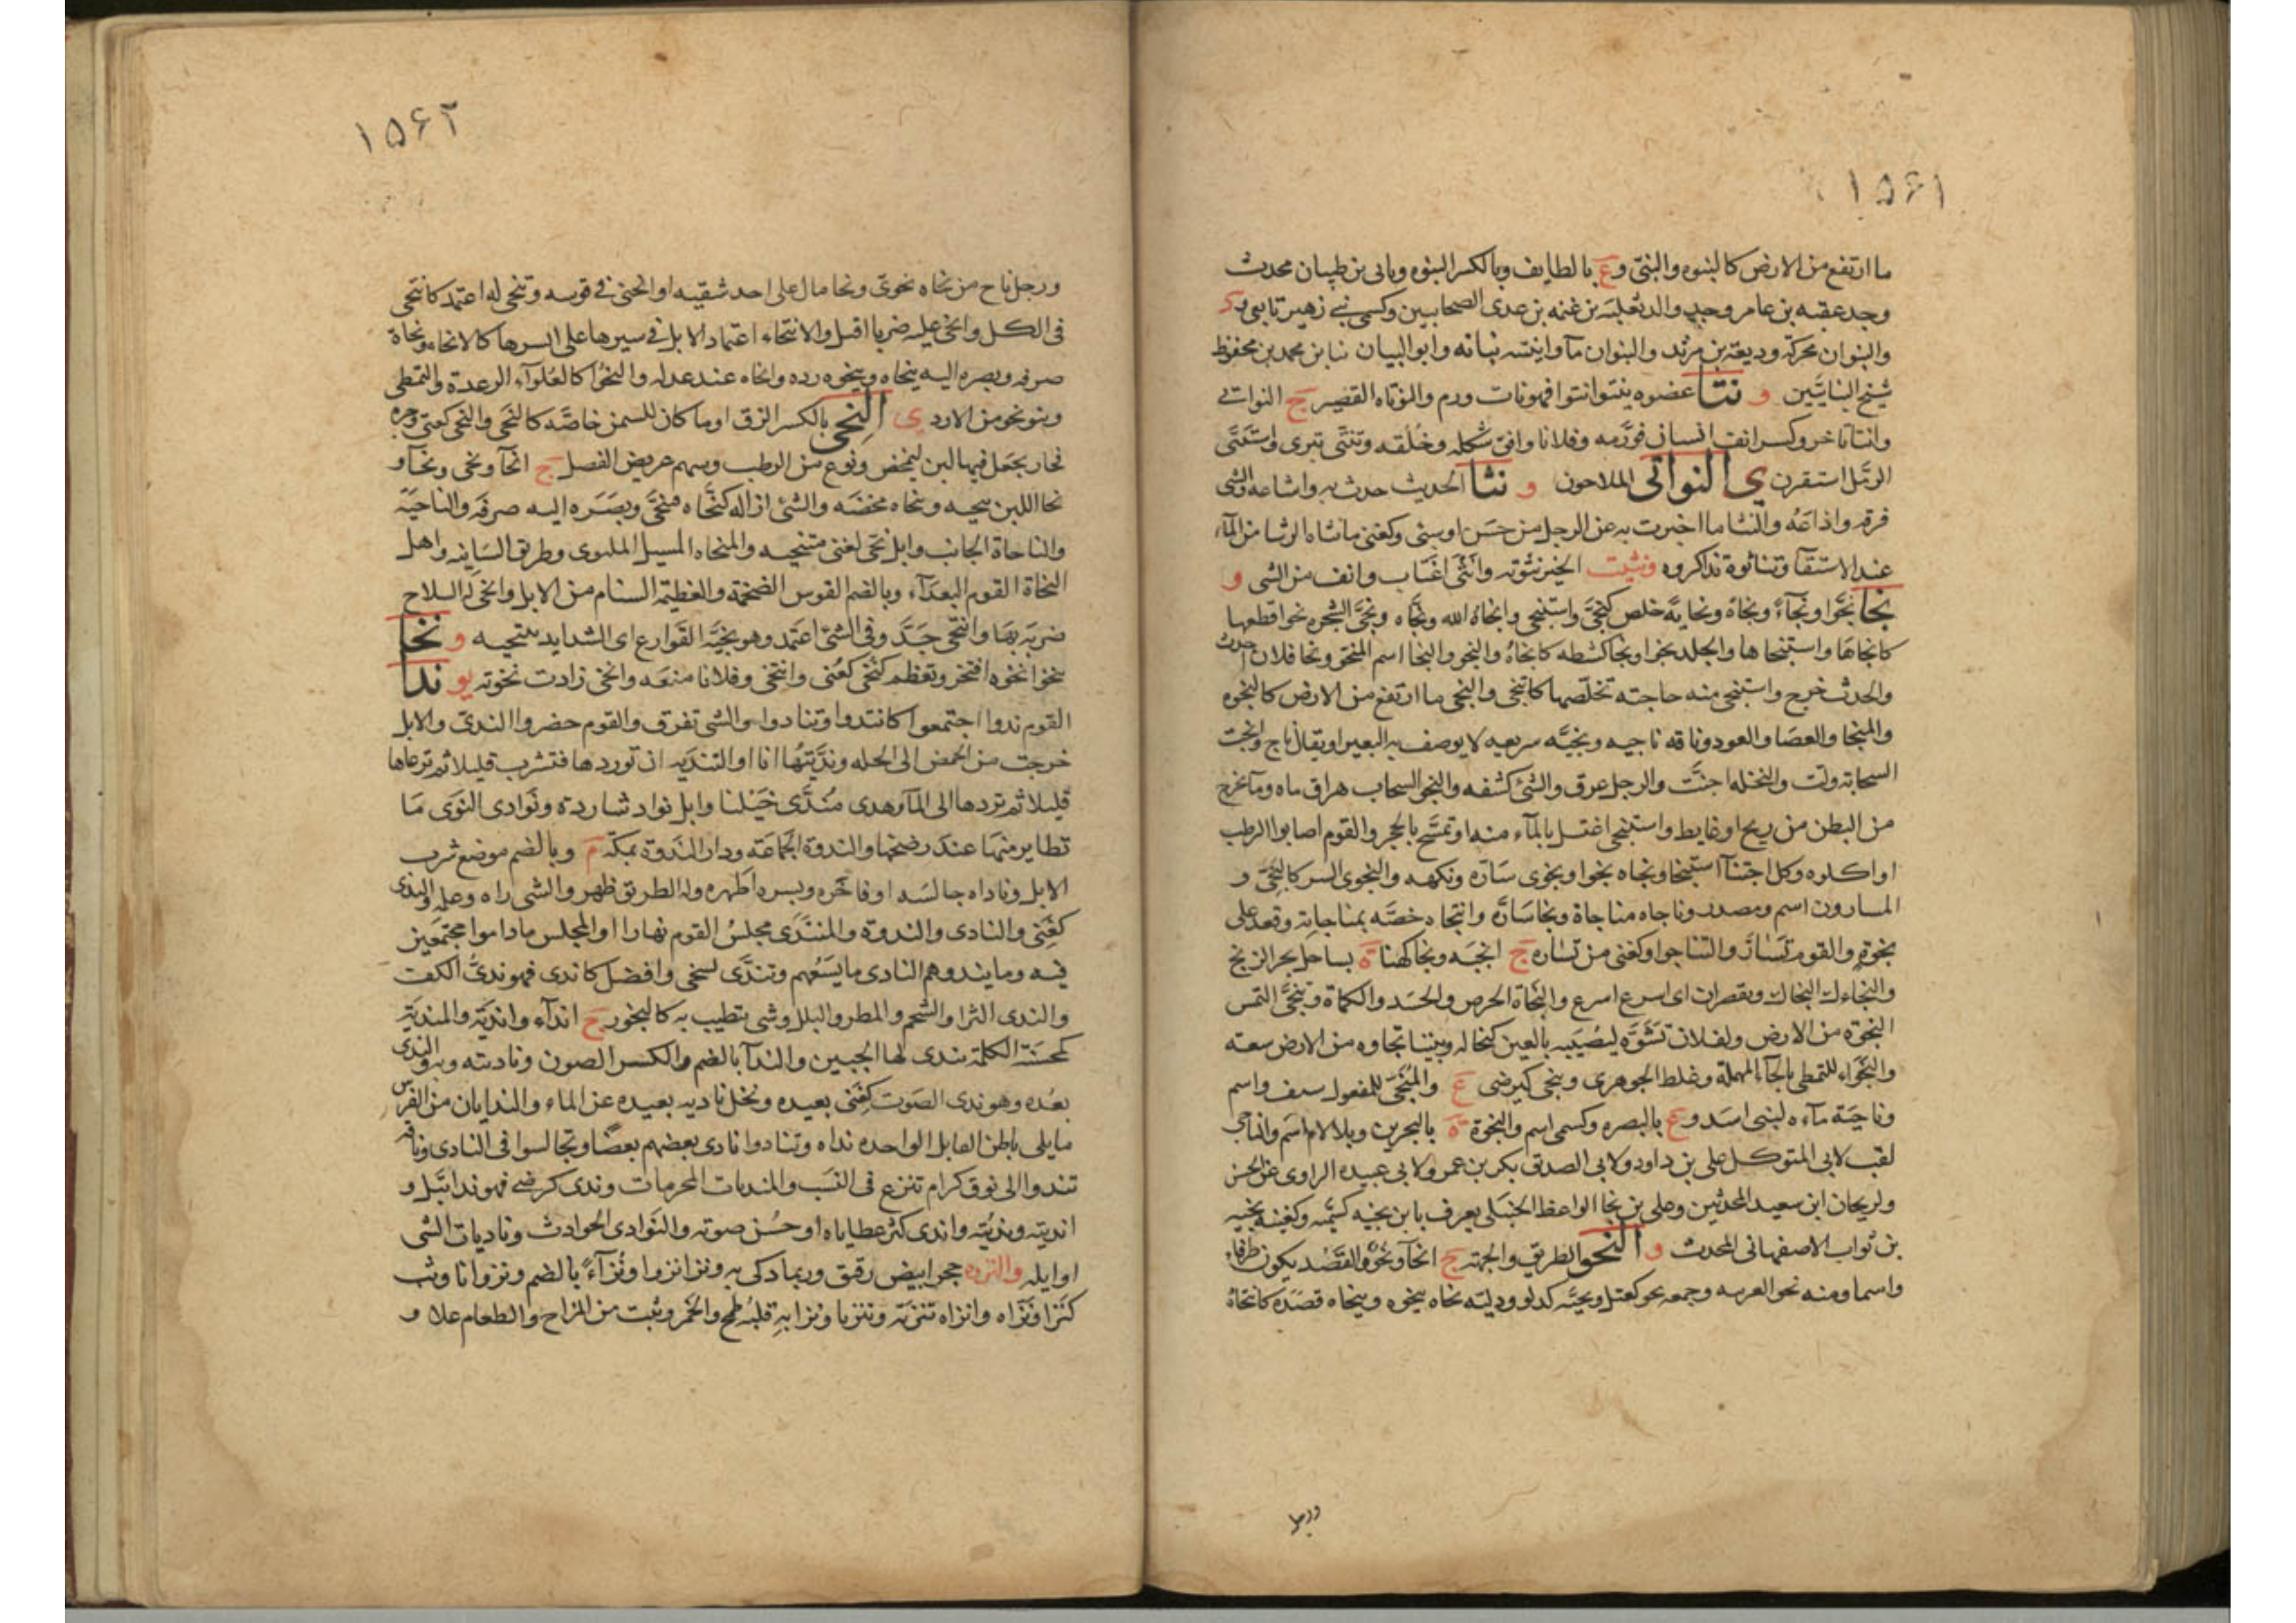 ١٥٦١
ما ارتفع من الارض كالنبوه والنبى و ع بالطايف وبالكسر النبوه ونابى بن ظبيان محدث
وجد عقبه بن عامر وجد والد ثعلبه بن غنمه بن عدى الصحابيين وكسمى بن زهير تابى و
والنبوان محركة وديعة بن مرثد والنبوان مآ وابنته نباته وابو البيان نبا بن محمد بن محفوظ
شيخ البنايتين و نتا عضوه ينتوا نتوا فهو نات ورم والنوتاه القصير ج النواتى
وانتا تاخر وكسر انف انسان فورمه وفلانا وافق شكله وخلقه وتنتى تبرى واستنتى
الرمل استقرن ى النواتى الملاحون و نثا الحديث حدث به واشاعه والشى
فرقه واذاعه والنثا ما اخبرت به عن الرجل من حسن او سيئ وكغنى ما نثاه الرشا من المآء
عند الاستقآ وتناثوه تذاكروه ونثيت الخبر نثوته وانثى اغتاب وانف من الشى و
نجا نجوا ونجآء ونجاة ونجاية خلص كنجى واستنجى وانجاه الله ونجاه ونجى الشجره نجوا قطعها
كانجاها واستنجاها والجلد نجوا ونجا كشطه كانجاه والنجو والنجا اسم المنجو ونجا فلان احدث
والحدث خرج واستنجى منه حاجته تخلصها كانتجى والنجى ما ارتفع من الارض كالنجوه
والمنجا والعصا والعود وناقه ناجيه ونجيه سريعه لا يوصف به البعير او يقال ناج وانجت
السحابة ولت والنخله اجنت والرجل عرق والشئ كشفه والنجو السحاب هراق ماه وما يخرج
من البطن من ريح او غايط واستنجى اغتسل بالمآء منه او تمسح بالحجر والقوم اصابوا الرطب
او اكلوه وكل اجتنآ استنجا ونجاه نجوا ونجوى ساره ونكهه والنجوى السر كالنجى و
المسارون اسم ومصدر وناجاه مناجاة ونجا ساره وانتجاه خصه بمناجاته وقعد على
نجوة والقوم تساروا كتناجوا وكغنى من تساره ج انجيه ونجا كهنا ة بساحل بحر الزنج
والنجاءك النجاك ويقصران اى اسرع اسرع والنجاة الحرص والحسد والكماة وتنجى التمس
النجوة من الارض ولفلان تشوه ليصيبه بالعين كنجا له وبيننا نجاوه من الارض سعته
والنجواء للتمطى بالحآء المهملة وغلط الجوهرى وينجى كيرضى ع والمنجى للمفعول سيف واسم
وناجية مآءه لبنى اسد و ع بالبصره وكسمى اسم والنجوة ة بالبحرين وبلا لام اسم والناجى
لقب لابى المتوكل على بن داود ولابى الصديق بكر بن عمر ولابى عبيده الراوى عن الحسن
ولريحان ابن سعيد المحدثين وعلى بن نجا الواعظ الحنبلى يعرف بابن نجيه كسميه وكغنيه نجيه
بن ثواب الاصفهانى المحدث و النحو الطريق والجهة ج انحآ ونحو والقصد يكون ظرفا
واسما ومنه نحو العربيه وجمعه نحو كعتل ونحيه كدلو ودليه نحاه ينحوه وينحاه قصده كانتحاه
ورجل
١٥٦٢
ورجل ناح من نحاه نحوى ونحا مال على احد شقيه او انحنى فى قوسه وتنحى له اعتمد كانتحى
فى الكل وانحى عليه ضربا اقبل والانتحاء اعتماد الابل فى سيرها على ايسرها كالانحاء ونحاه
صرفه وبصره اليه ينحاه وينحوه رده وانحاه عنه عدله والنحوا كالغلوآء الرعدة والتمطى
وبنو نحو من الازد ى النحى بالكسر الزق او ما كان للسمن خاصة كالنحى والنحى كفتى وجره
فخار يجعل فيها لبن ليمخض ونوع من الرطب وسهم عريض الفصل ج انحآ ونحى ونحآ و
نحا اللبن ينحيه ونحاه مخضه والشئ ازاله كنحاه فتنحى وبصره اليه صرفه والناحية
والناحاة الجانب وابل نحى لغنى متنحيه والمنحاه المسيل الملتوى وطريق السانيه واهل
النحاة القوم البعدآء وبالضم القوس الضخمة والعظيمة السنام من الابل وانحى له السلاح
ضربه بها وانتحى جد وفى الشئ اعتمد وهو نحية القوارع اى الشدايد تنتحيه و نخا
ينخوا نخوه افتخر وتعظم كنخى كعنى وانتخى وفلانا منعه وانخى زادت نخوته يو ندا
القوم ندوا اجتمعوا كانتدوا وتنادوا والشى تفرق والقوم حضروا الندى والابل
خرجت من الحمض الى الخله ونديتها انا او التنديه ان توردها فتشرب قليلا ثم ترعاها
قليلا ثم تردها الى المآ وهذى مندى خيلنا وابل نواد شاردة ونوادى النوى ما
تطاير منها عند رضخها والندوة الجماعه ودار الندوة بمكة م وبالضم موضع شرب
الابل وناداه جالسه او فاخره وبسره اظهره وله الطريق ظهر والشى راه وعلمه والندى
كغنى والنادى والندوة والمنتدى مجلس القوم نهارا او المجلس ما داموا مجتمعين
فيه وما يندوهم النادى ما يسعهم وتندى تسخى وافضل كاندى فهو ندى الكف
والندى الثرا والشحم والمطر والبلل وشى يتطيب به كالبخور ج اندآء واندية والمندية
كمحسنة الكلمة يندى لها الجبين والندآ بالضم والكسر الصون وناديته وبه والندى
بعده وهو ندى الصوت كغنى بعيده ونخل ناديه بعيده عن الماء والندايان من الفرس
ما يلى باطن الفايل الواحده نداه وتنادوا نادى بعضهم بعضا وتجالسوا فى النادى وناقه
تندوا الى نوق كرام تنزع فى النسب والمنديات المخزيات وندى كرضى فهو ند ابتل و
انديته ونديته واندى كثر عطاياه او حسن صوته والنوادى الحوادث وناديات الشى
اوايله والندوه حجر ابيض رقيق وربما ذكى به ونزا نزوا ونزآء بالضم ونزوانا وثب
كنزا ونزاه وانزاه تنزية وتنزيا ونزا به قلبه طمح والخمر وثبت من المزاح والطعام علا و